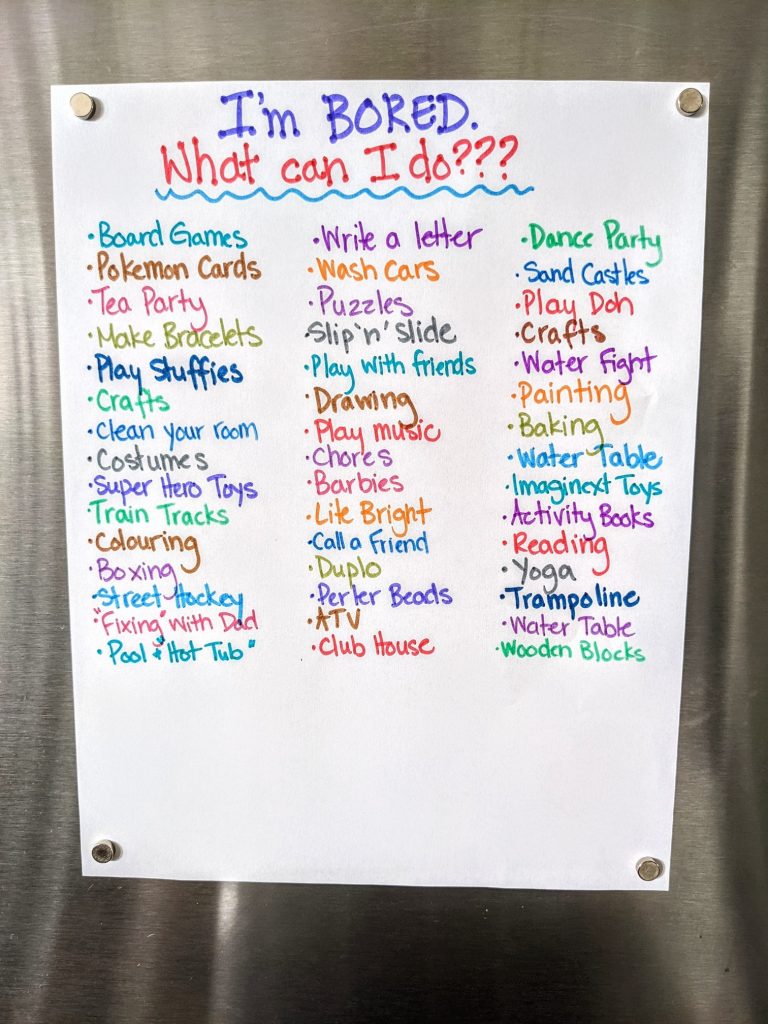 I'm BORED.
What can I do???
• Board Games
• Pokemon Cards
• Tea Party
• Make Bracelets
• Play Stuffies
• Crafts
• Clean your room
• Costumes
• Super Hero Toys
• Train Tracks
• Colouring
• Boxing
• Street Hockey
• "Fixing" With Dad
• Pool & "Hot Tub"
• Write a letter
• Wash Cars
• Puzzles
• Slip 'n' Slide
• Play with friends
• Drawing
• Play music
• Chores
• Barbies
• Lite Bright
• Call a Friend
• Duplo
• Perler Beads
• ATV
• Club House
• Dance Party
• Sand Castles
• Play Doh
• Crafts
• Water Fight
• Painting
• Baking
• Water Table
• Imaginext Toys
• Activity Books
• Reading
• Yoga
• Trampoline
• Water Table
• Wooden Blocks